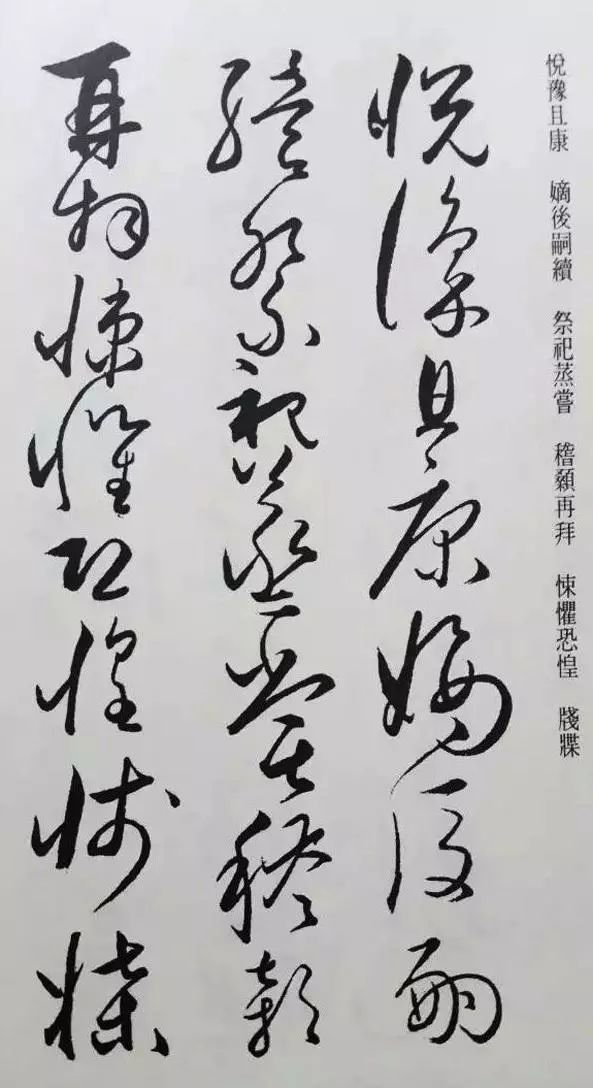 悅豫且康　嫡後嗣續　祭祀蒸嘗　稽顙再拜　悚懼恐惶　牋牒
悅豫且康嫡後嗣
續祭祀蒸嘗稽顙
再拜悚懼恐惶牋牒